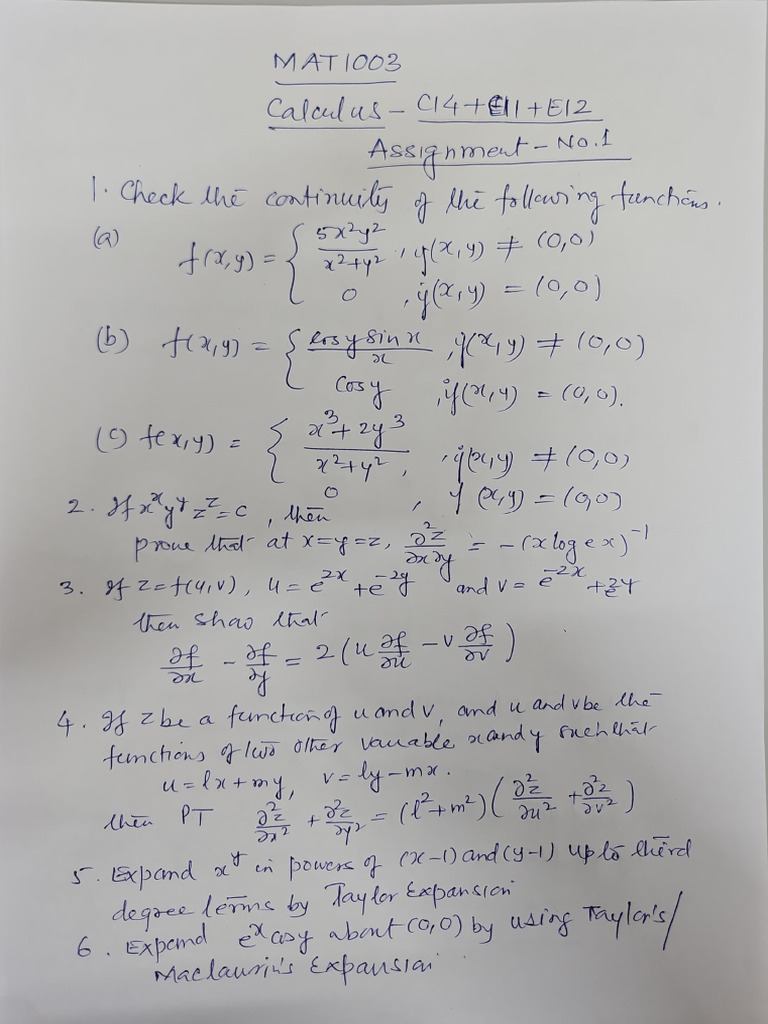 MAT1003
Calculus - C14+E11+E12
Assignment - No.1
1. Check the continuity of the following functions.
(a) f(x,y) = { 5x²y² / x²+y² , if (x,y) ≠ (0,0)
0 , if (x,y) = (0,0)
(b) f(x,y) = { cosy sin x / x , if (x,y) ≠ (0,0)
Cosy , if (x,y) = (0,0).
(c) f(x,y) = { x³+2y³ / x²+y² , , if (x,y) ≠ (0,0)
0 , if (x,y) = (0,0)
2. If xˣ yʸ zᶻ = c , then
prove that at x=y=z, ∂²z/∂x∂y = -(x log ex)⁻¹
3. If z=f(u,v), u = e²ˣ + e⁻²ʸ and v = e⁻²ˣ + e²ʸ
then show that
∂f/∂x - ∂f/∂y = 2(u ∂f/∂u - v ∂f/∂v)
4. If z be a function of u and v, and u and v be the
functions of two other variable x and y such that
u = lx+my, v = ly-mx.
then PT ∂²z/∂x² + ∂²z/∂y² = (l²+m²)(∂²z/∂u² + ∂²z/∂v²)
5. Expand xʸ in powers of (x-1) and (y-1) upto third
degree terms by Taylor Expansion
6. Expand eˣ cosy about (0,0) by using Taylor's/
Maclaurin's Expansion.